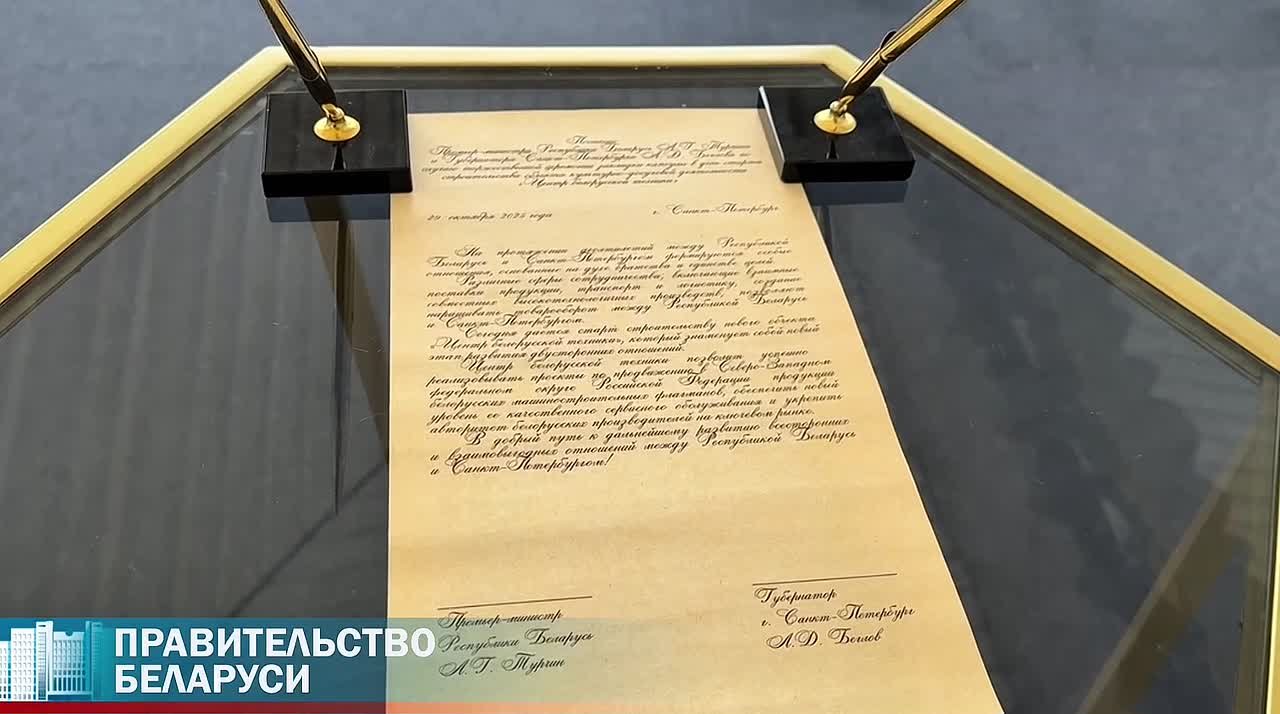 Премьер-министра Республики Беларусь А.Г. Турчина
и Губернатора Санкт-Петербурга А.Д. Беглова по
случаю торжественной церемонии закладки капсулы в день старта
строительства объекта культурно-досуговой деятельности
«Центр белорусской техники»
29 октября 2025 года г. Санкт-Петербург
На протяжении десятилетий между Республикой
Беларусь Санкт-Петербургом формируются особые
отношения, основанные на духе братства и единстве целей.
Различные сферы сотрудничества, включающие взаимные
поставки продукции, транспорт и логистику, создание
совместных высокотехнологичных производств, позволяют
наращивать товарооборот между Республикой Беларусь
и Санкт-Петербургом.
Сегодня дается старт строительству нового объекта
«Центр белорусской техники», который знаменует собой новый
этап развития двусторонних отношений.
Центр белорусской техники позволит успешно
реализовывать проекты по продвижению в Северо-Западном
федеральном округе Российской Федерации продукции
белорусских машиностроительных флагманов, обеспечить новый
уровень ее качественного сервисного обслуживания и укрепить
авторитет белорусских производителей на ключевом рынке.
В добрый путь к дальнейшему развитию всесторонних
и взаимовыгодных отношений между Республикой Беларусь
и Санкт-Петербургом!
Премьер-министр
Республики Беларусь
А.Г. Турчин
Губернатор
г. Санкт-Петербург
А.Д. Беглов
ПРАВИТЕЛЬСТВО
БЕЛАРУСИ